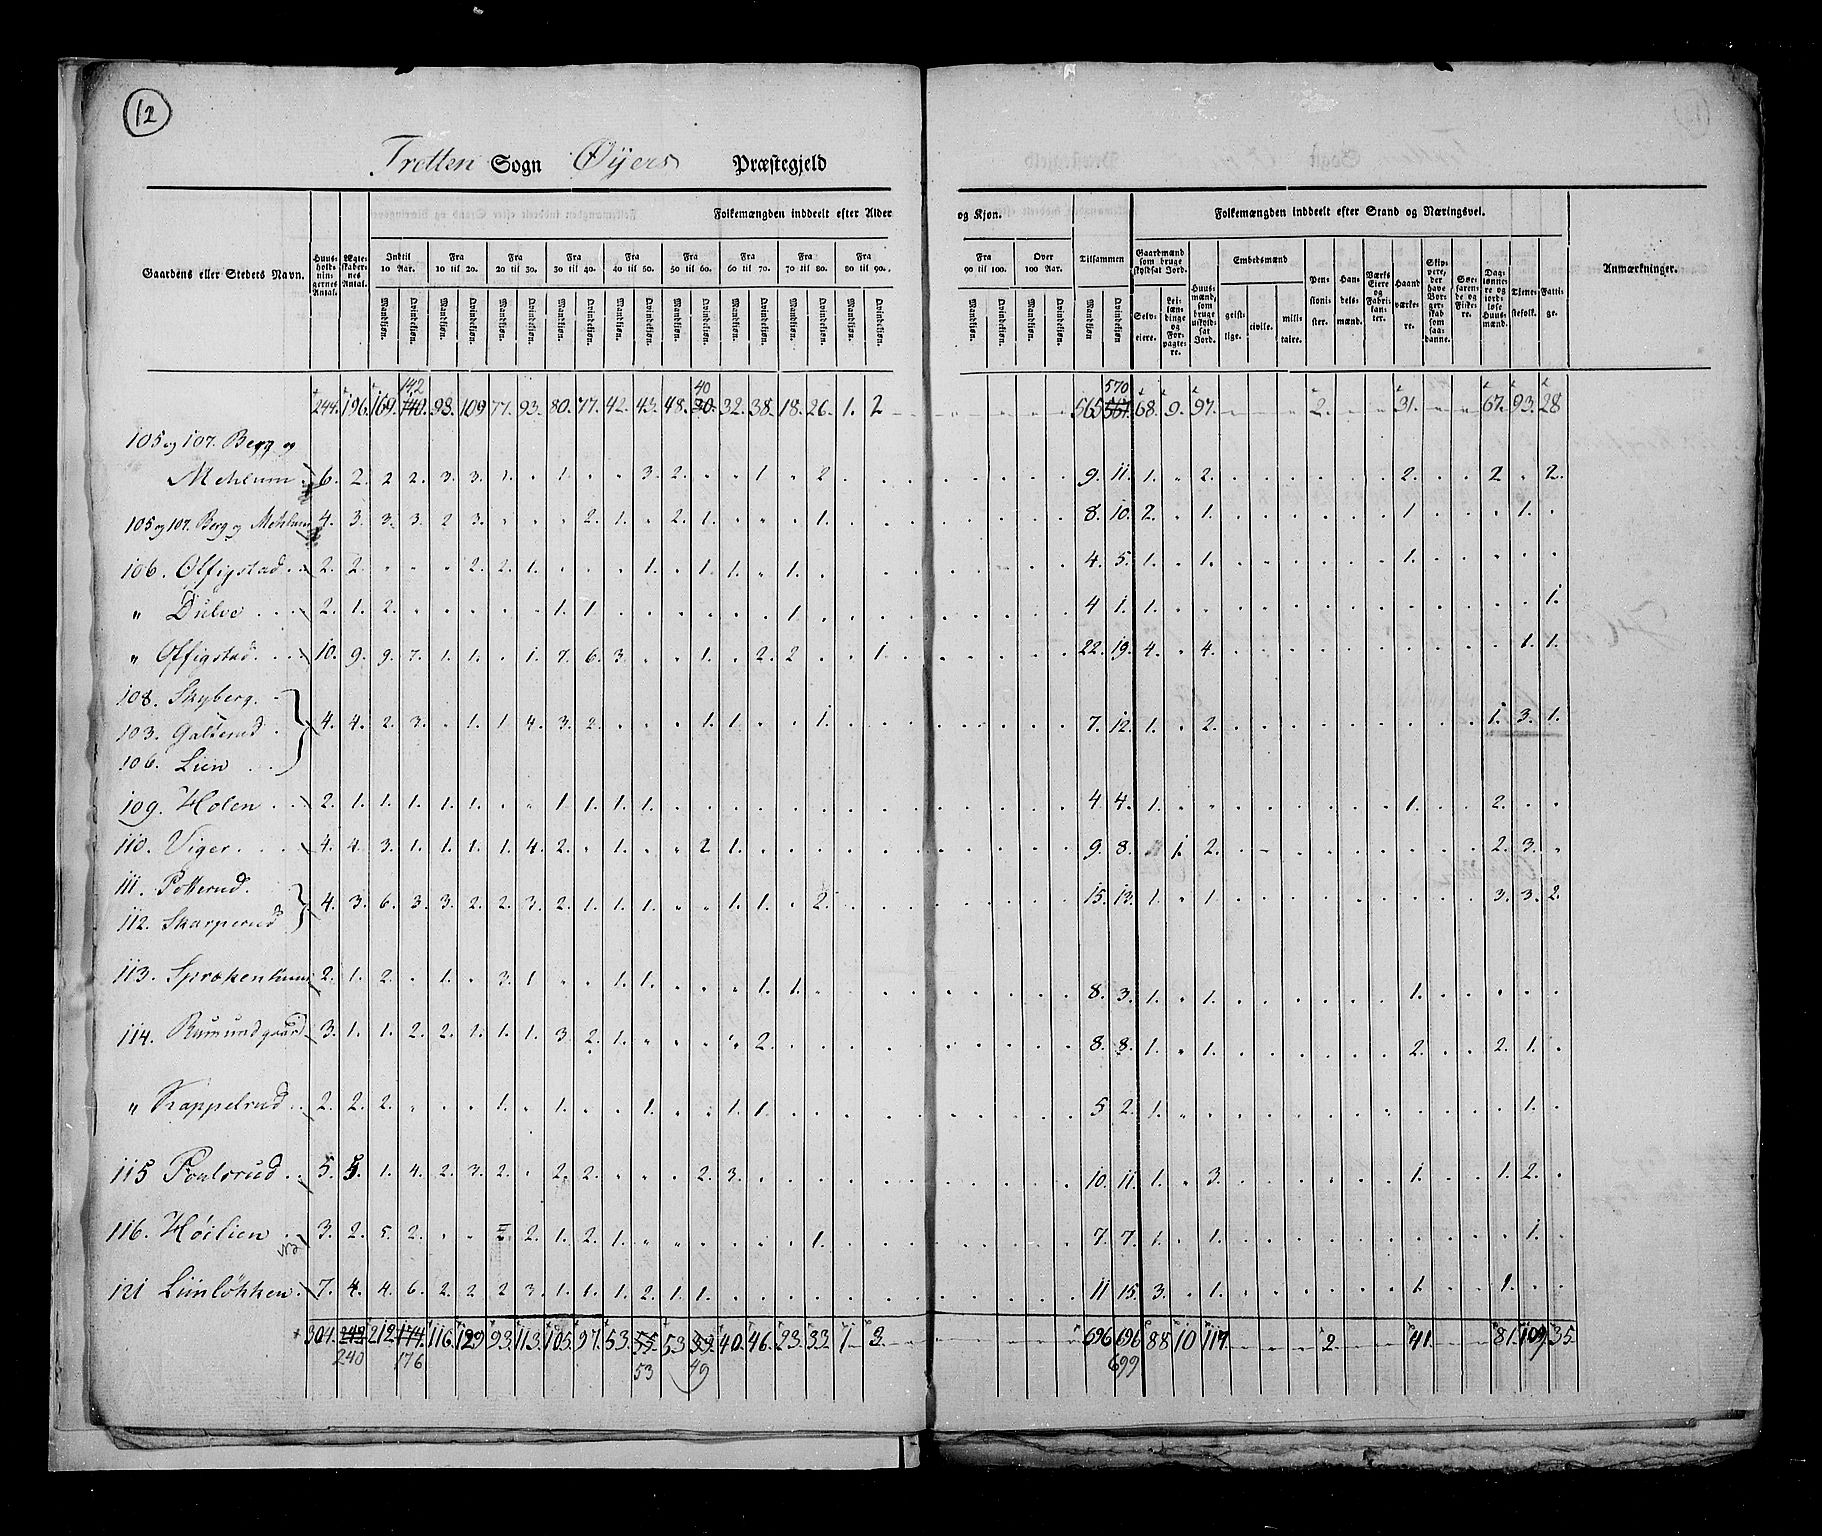 12
Tretten Sogn Øyers Præstegjeld
Folkemængden inddeelt efter Alder og Kjøn. Folkemængden inddeelt efter Stand og Næringsvei.
Gaardens eller Stedets Navn. Huusholdningernes Antal. Ægteskabernes Antal. Indtil 10 Aar. Fra 10 til 20. Fra 20 til 30. Fra 30 til 40. Fra 40 til 50. Fra 50 til 60. Fra 60 til 70. Fra 70 til 80. Fra 80 til 90. Fra 90 til 100. Over 100 Aar. Tilsammen Gaardmænd som bruge skyldsat Jord. Huusmænd, som bruge uskyldsat Jord. Embedsmænd Pensionister. Handelsmænd. Værks Eiere og Fabrikanter. Haandværkere. Skippere, der have Borgerskab som saadanne. Søefarende og Fiskere. Daglønnere og jordløse Huusmænd. Tjenestefolk. Fattige. Anmærkninger.
Mandkjøn. Qvindekjøn. Mandkjøn. Qvindekjøn. Mandkjøn. Qvindekjøn. Mandkjøn. Qvindekjøn. Mandkjøn. Qvindekjøn. Mandkjøn. Qvindekjøn. Mandkjøn. Qvindekjøn. Mandkjøn. Qvindekjøn. Mandkjøn. Qvindekjøn. Mandkjøn. Qvindekjøn. Mandkjøn. Qvindekjøn. Mandkjøn Qvindekjøn. Selveiere. Leilændinge og Forpagtere. geistlige. civile. militaire.
142 40 570
244. 196. 169. 140. 93. 109 77. 93. 80. 77. 42. 43. 48. 30. 32. 38. 18. 26. 1. 2 565 567. 68. 9. 97. 2. 31. 67. 93. 28
105 og 107. Berg og
Mehlum 6. 2. 2 2. 3. 3. 1. 1. 3. 2. 1. 2. 9. 11. 1. 2. 2. 2 2.
105 og 107. Berg og Mehlum 4. 3. 3. 3. 2 3. 2. 1. 2. 1. 1. 8. 10. 2. 1. 1. 1.
106. Offigstad 2. 2. 2. 2. 1. 1. 1. 1. 1. 4. 5. 1. 1. 1.
" Dulve 2. 1. 2. 1. 1. 1. 4 1. 1. 1.
" Offigstad. 10. 9. 9. 7. 1. 1. 1. 7. 6. 3. 1. 2. 2. 1. 22. 19. 4. 4. 1. 1.
108. Skyberg.
103. Galterud 4. 4. 2. 3. 1. 1. 4. 3. 2. 1. 1. 1. 7. 12. 1. 2. 1. 3. 1.
106. Lien
109. Holen 2. 1. 1. 1. 1. 1. 1. 1. 1. 1. 4 4. 1. 1. 2.
110. Viger. 4. 4. 3. 1. 1. 1. 1. 4. 2. 1. 2 1. 9. 8. 1. 2. 2. 3.
111. Potterud.
112. Skarperud 4. 3. 6. 3. 3. 2. 2. 3. 2. 1. 1. 1. 1. 1. 2. 15. 13. 1. 1. 3. 3. 2.
113. 2. 1. 2. 1. 3. 1. 1. 1. 1. 1. 8. 3. 1. 1. 1.
114. Rumundgaard 3. 1. 1. 2. 2. 1. 1. 1. 3. 2. 1. 2. 8. 8. 1. 1. 2. 2. 1.
" Kappelrud 2. 2. 2. 1. 1. 1. 1. 1. 5 2. 1. 1.
115 Poulsrud 5. 5. 1. 4. 2. 3. 2. 2. 2. 2. 3. 10. 11. 1. 3. 1. 1. 2.
116. Høilien 3. 2. 5. 2. 2. 2. 1. 2. 1. 1. 7. 7. 1. 1. 1.
121 Liinløkken 7. 4. 4. 6. 2. 2 2 3. 1. 1. 1. 2. 1. 1. 11 15. 3. 1. 1. 1.
304. 242 212 174. 116. 129 93. 113. 105. 97. 53. 55 53 39 40. 46. 23. 33. 1 3. 696 696 88 10 117 2. 41 81. 109. 35
240 176 53 49 699